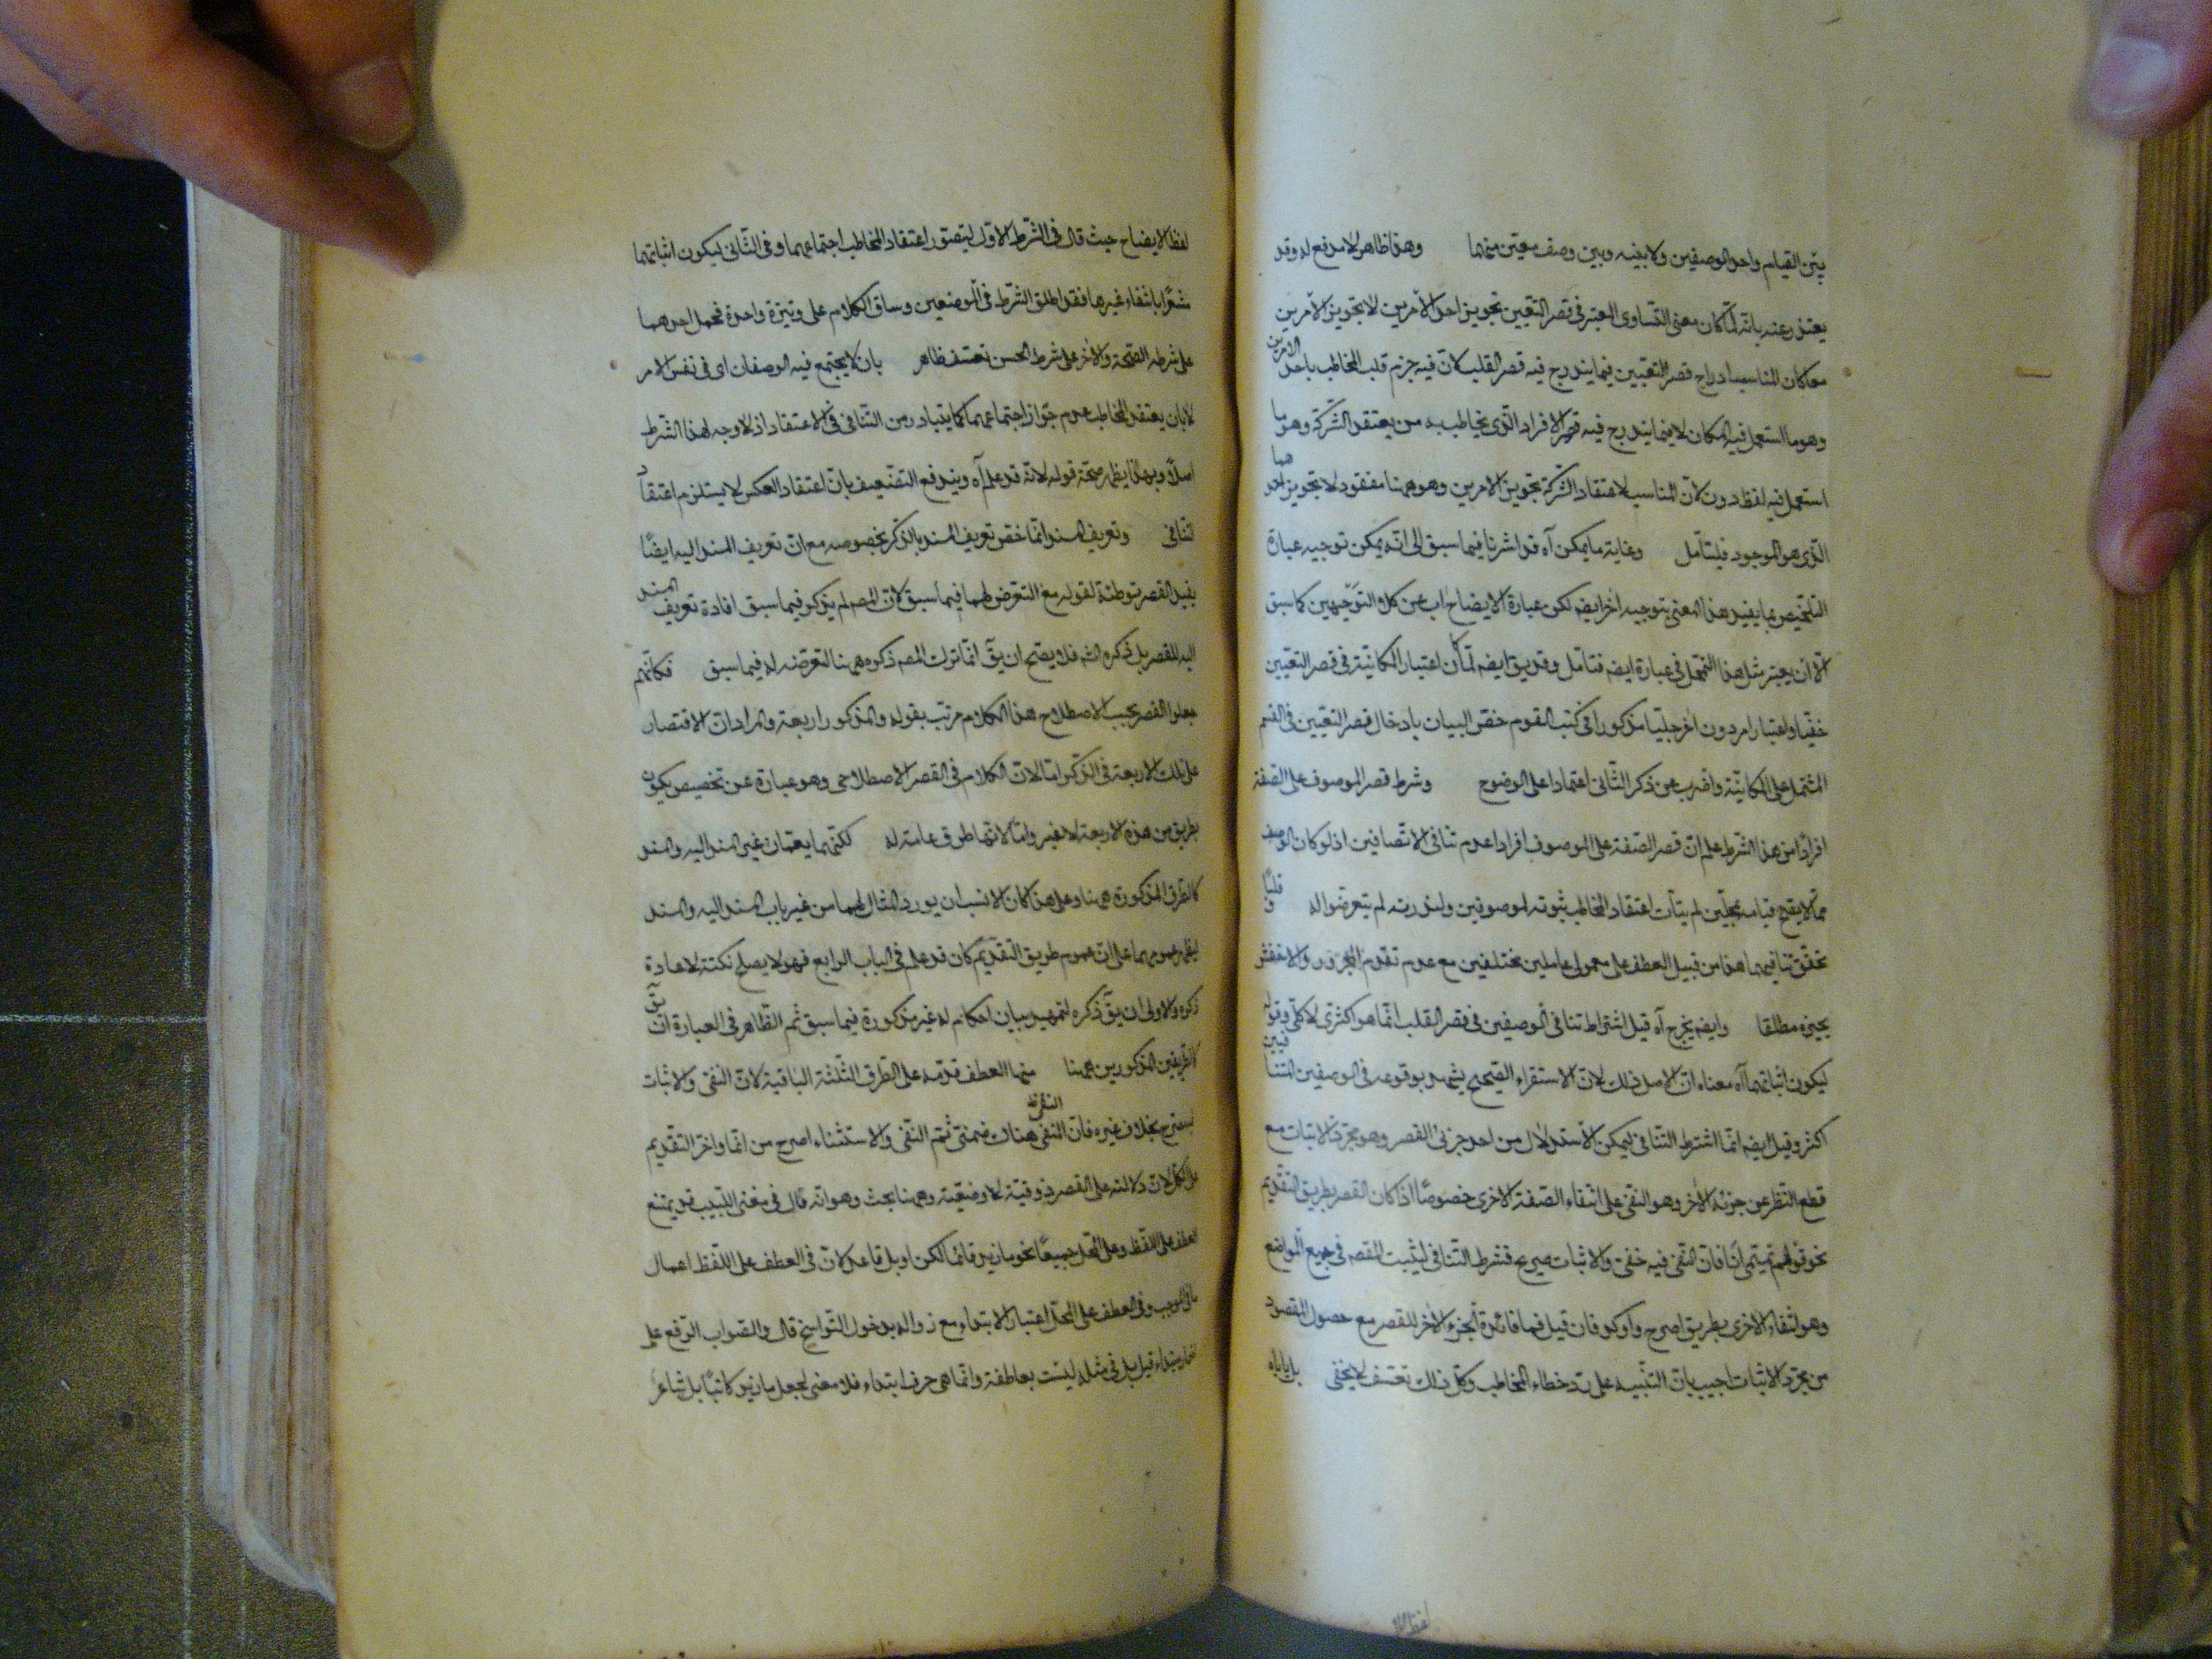 بين القيام واحد الوصفين ولا بينه وبين وصف معين منهما وهذا ظاهر لا مدفع له وقد
يعتذر عنه بانه لما كان معنى التساوى المعتبر فى قصر التعيين تجويز احد الامرين لا تجويز الامرين
معا كان المناسب ادراج قصر التعيين فيما يندرج فيه قصر القلب لان فيه جزم قلب المخاطب باحد الامرين
وهو ما استعمل فيه لفظ مكان لا فيما يندرج فيه قصر الافراد الذى يخاطب به من يعتقد الشركة وهو ما
استعمل فيه لفظ دون لان المناسب لاعتقاد الشركة تجويز الامرين وهو ههنا مفقود لا تجويز احدهما
الذى هو الموجود فليتامل وغاية ما يمكن آه قد اشرنا فيما سبق الى انه يمكن توجيه عبارة
التلخيص بما يفيد هذا المعنى بتوجيه اخر ايضا لكن عبارة الايضاح اب عن كلا التوجيهين كما سبق
الا ان يعتبر مثل هذا التمحل فى عبارة ايضه فتامل وقد يق ايضه لما كان اعتبار المكانية فى قصر التعيين
خفيا واعتبار امر دون اخر جليا مذكورا فى كتب القوم خص البيان بادخال قصر التعيين فى القسم
المشتمل على المكانية واضرب عن ذكر الثانى اعتمادا على الوضوح وشرط قصر الموصوف على الصفة
افرادا من هذا الشرط علم ان قصر الصفة على الموصوف افرادا عدم تنافى الاتصافين اذ لو كان الوصف
مما لا يصح قيامه بمحلين لم يتات اعتقاد المخاطب ثبوته لموصوفين ولندرته لم يتعرضوا له وقلبا
تحقق تنافيهما هذا من قبيل العطف على معمولى عاملين مختلفين مع عدم تقدم المجرور والاخفش
يجيزه مطلقا وايضه يخرج آه قيل اشتراط تنافى الوصفين فى قصر القلب انما هو اكثرى لا كلى وقوله
ليكون اثباتهما آه معناه ان الاصل ذلك لان الاستقراء الصحيح يشهد بوقوعه فى الوصفين المتنافيين
اكثر وقيل ايضه انما اشترط التنافى ليمكن الاستدلال من احد جزئى القصر وهو مجرد الاثبات مع
قطع النظر عن جزئه الاخر وهو النفى على انتفاء الصفة الاخرى خصوصا اذا كان القصر بطريق التقديم
نحو قولهم تميمى انا فان النفى فيه خفى والاثبات صريح فشرط التنافى ليثبت المقصم فى جميع المواضع
وهو انتفاء الاخرى بطريق اصرح واوكد فان قيل فما فائدة الجزء الاخر للقصر مع حصول المقصود
من مجرد الاثبات اجيب بان التنبيه على رد خطاء المخاطب وكل ذلك تعسف لا يخفى بل ياباه
لفظ الا
لفظ الايضاح حيث قال فى الشرط الاول ليتصور اعتقاد المخاطب اجتماعهما وفى الثانى ليكون اثباتهما
مشعرا بانتفاء غيرها فقد اطلق الشرط فى الموضعين وساق الكلام على وتيرة واحدة فحمل احدهما
على شرط الصحة والاخر على شرط الحسن تعسف ظاهر بان لا يجتمع فيه الوصفان اى فى نفس الامر
لا بان يعتقد المخاطب عدم جواز اجتماعهما كما يتبادر من التنافى فى الاعتقاد اذ لا وجه لهذا الشرط
اصلا وبهذا يظهر صحة قوله لانه قد علم آه ويندفع التضعيف بان اعتقاد العكس لا يستلزم اعتقاد
التنافى وتعريف المسند انما خص تعريف المسند بالذكر بخصوصه مع ان تعريف المسند اليه ايضا
يفيد القصر توطئة لقوله مع التعرض لهما فيما سبق لان المصم لم يذكر فيما سبق افادة تعريف المسند
اليه للقصر بل ذكره الشه فلا يصح ان يق انما ترك المصم ذكره ههنا لتعرضه له فيما سبق فكانهم
جعلوا القصر بحسب الاصطلاح هذا الكلام مرتب بقوله والمذكور اربعة والمراد ان الاقتصار
على تلك الاربعة فى الذكر اما لان الكلام فى القصر الاصطلاحى وهو عبارة عن تخصيص يكون
بطريق من هذه الاربعة لا غير واما لانها طرق عامة له لكنهما يعمان غير المسند اليه والمسند
كالطرق المذكورة ههنا وعلى هذا كان الانسب ان يورد المثال لهما من غير باب المسند اليه والمسند
ليظهر عمومهما على ان عموم طريق التقديم كان قد علم فى الباب الرابع فهو لا يصلح نكتة لاعادة
ذكره والاولى ان يق ذكره لتمهيد بيان احكام له غير مذكورة فيما سبق ثم الظاهر فى العبارة ان يق
كالطريقين المذكورين ههنا منها العطف قدمه على الطرق الثلثة الباقية لان النفى والاثبات
يصرح بخلاف غيره فان النفى هناك ضمنى ثم النفى والاستثناء اصرح من انما واخر التقديم
عن الكل لان دلالته على القصر ذوقية لا وضعية وههنا بحث وهو انه قال فى مغنى اللبيب قد يمتنع
العطف على اللفظ وعلى المحل جميعا نحو ما زيد قائما لكن او بل قاعد لان فى العطف على اللفظ اعمال
ما فى الموجب وفى العطف على المحل اعتبار الابتداء مع زواله بدخول النواسخ قال والصواب الرفع على
اضمار مبتداء قيل بل فى مثله ليست بعاطفة وانما هى حرف ابتداء فلا معنى لجعل ما زيد كاتبا بل شاعر